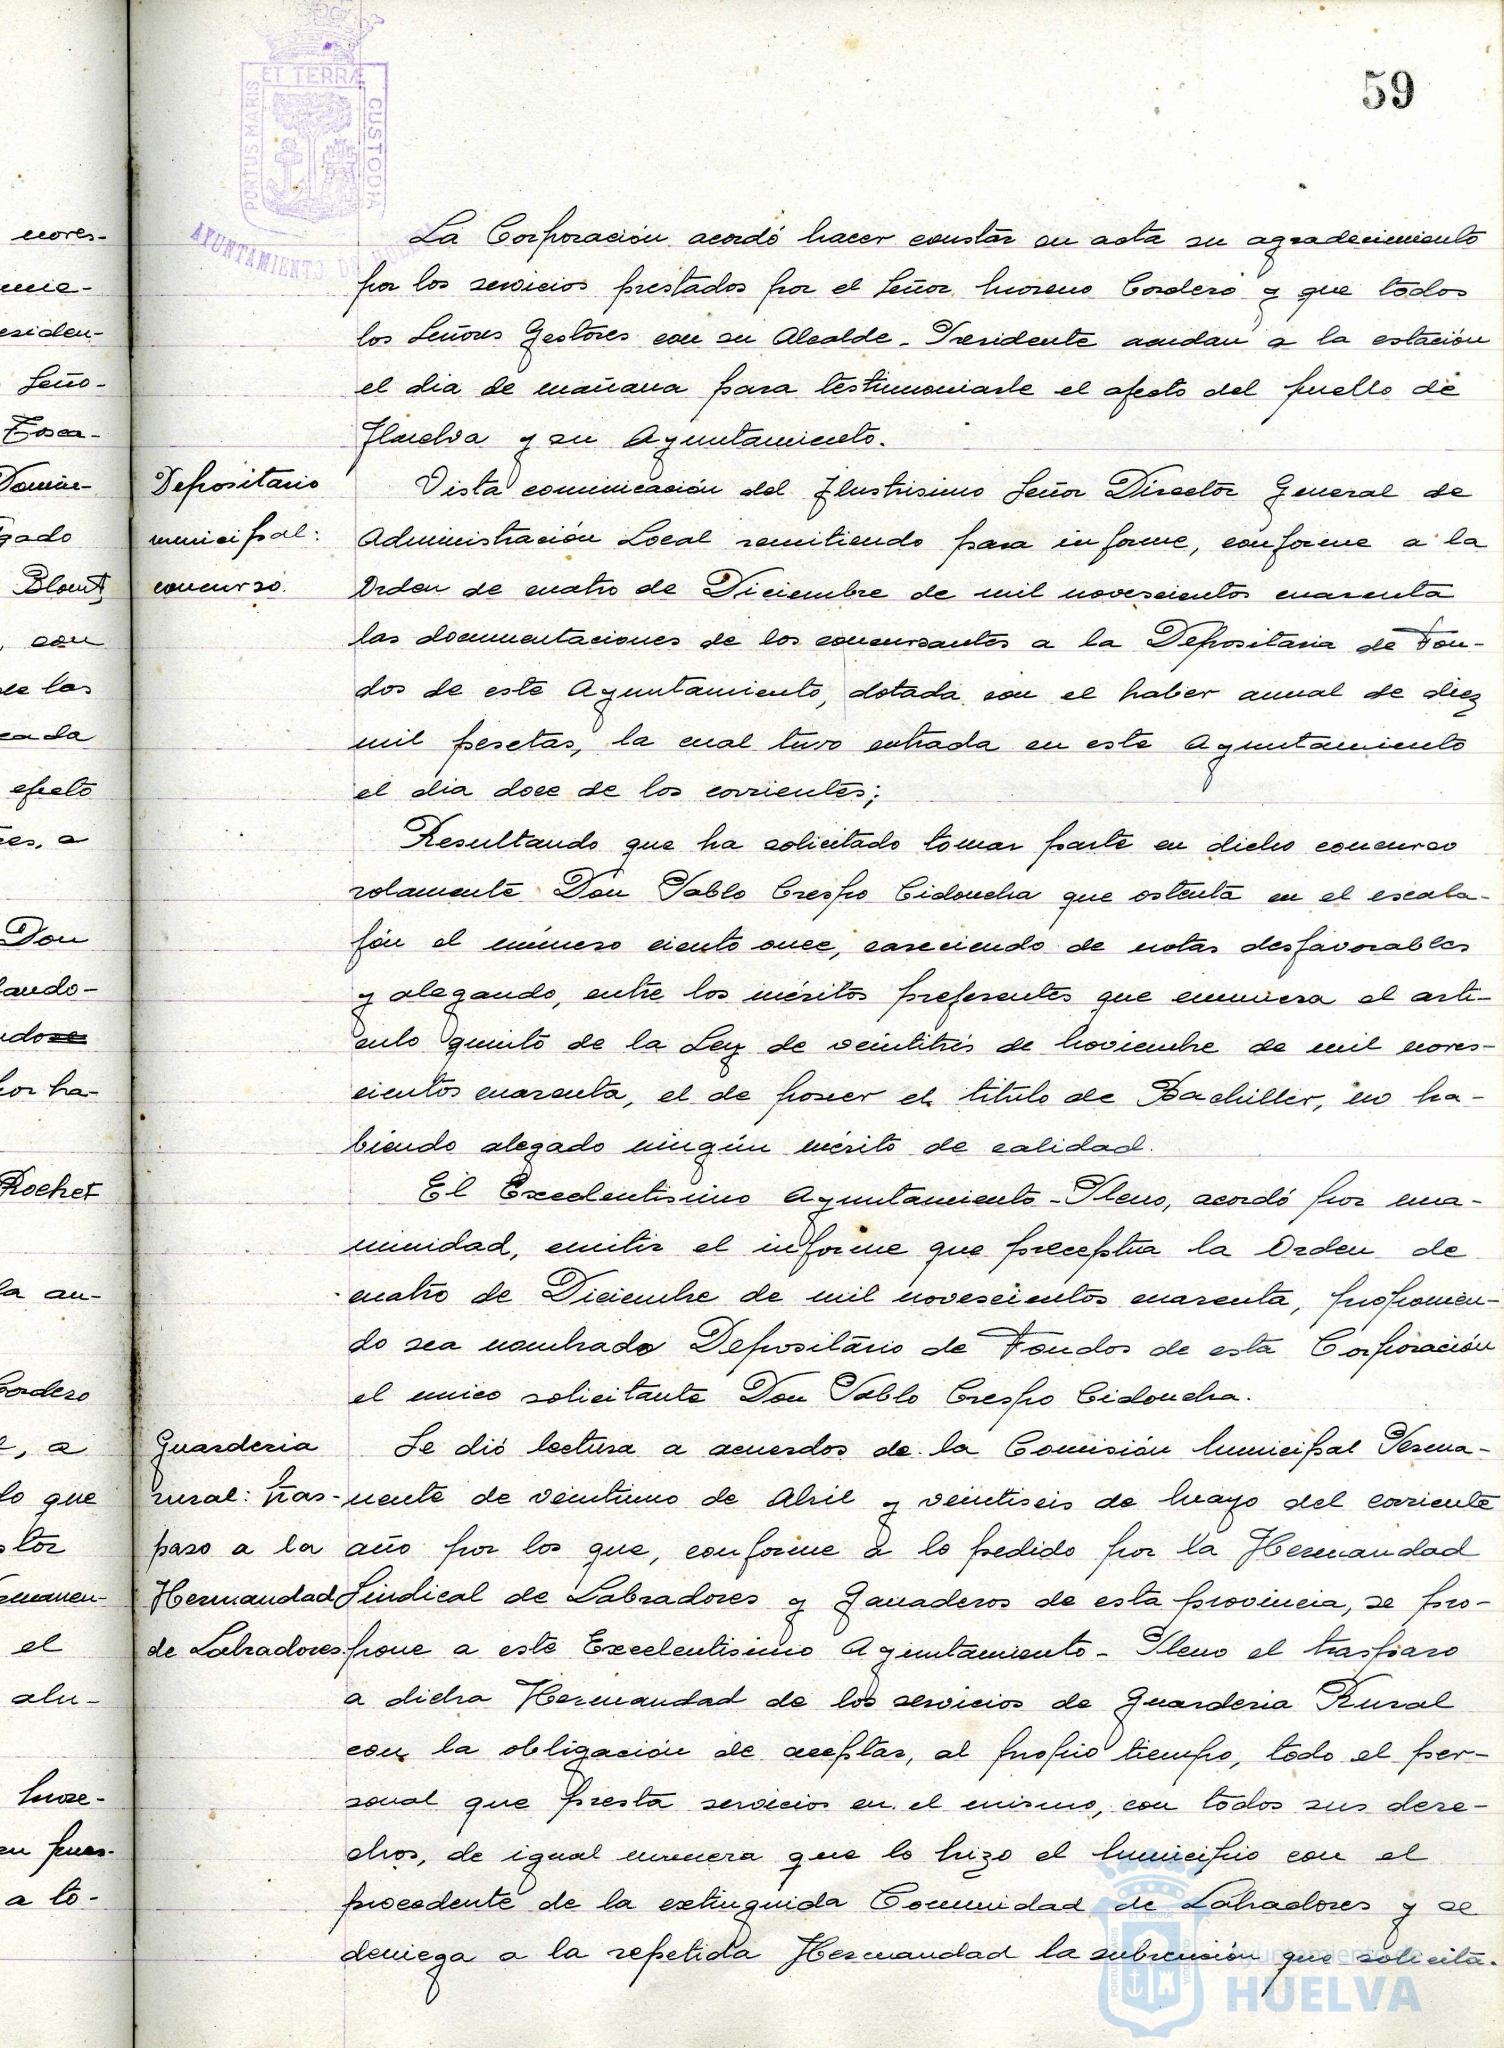 59
ET TERRÆ
PORTUS MARIS
CUSTODIA
AYUNTAMIENTO DE HUELVA
La Corporación acordó hacer constar en acta su agradecimiento
por los servicios prestados por el Señor Moreno Cordero y que todos
los Señores Gestores con su Alcalde-Presidente acudan a la estación
el dia de mañana para testimoniarle el afecto del pueblo de
Huelva y su Ayuntamiento.
Depositario
municipal:
concurso.
Vista comunicación del Ilustrisimo Señor Director General de
Administración Local remitiendo para informe, conforme a la
Orden de cuatro de Diciembre de mil novescientos cuarenta
las documentaciones de los concursantes a la Depositaria de Fon-
dos de este Ayuntamiento, dotada con el haber anual de diez
mil pesetas, la cual tuvo entrada en este Ayuntamiento
el dia doce de los corrientes;
Resultando que ha solicitado tomar parte en dicho concurso
solamente Don Pablo Crespo Cidoncha que ostenta en el escala-
fón el número ciento once, careciendo de notas desfavorables
y alegando, entre los méritos preferentes que enumera el arti-
culo quinto de la Ley de veintitrés de Noviembre de mil noves-
cientos cuarenta, el de poseer el titulo de Bachiller, no ha-
biendo alegado ningún mérito de calidad.
El Excelentisimo Ayuntamiento-Pleno, acordó por una-
nimidad, emitir el informe que preceptua la Orden de
cuatro de Diciembre de mil novescientos cuarenta, proponien-
do sea nombrado Depositario de Fondos de esta Corporación
el unico solicitante Don Pablo Crespo Cidoncha.
Guarderia
rural: tras-
paso a la
Hermandad
de Labradores.
Se dió lectura a acuerdos de la Comisión Municipal Perma-
nente de veintiuno de Abril y veintiseis de Mayo del corriente
año por los que, conforme a lo pedido por la Hermandad
Sindical de Labradores y Ganaderos de esta provincia, se pro-
pone a este Excelentisimo Ayuntamiento-Pleno el traspaso
a dicha Hermandad de los servicios de Guarderia Rural
con la obligación de aceptar, al propio tiempo, todo el per-
sonal que presta servicios en el mismo, con todos sus dere-
chos, de igual manera que lo hizo el Municipio con el
procedente de la extinguida Comunidad de Labradores y se
deniega a la repetida Hermandad la subvención que solicita.
Ayuntamiento de
HUELVA
noves-
esiden-
Seño-
Tosca-
gado
con
de las
efecto
Don
dose
por ha-
Rochet
la an-
Cordero
lo que
el
a to-